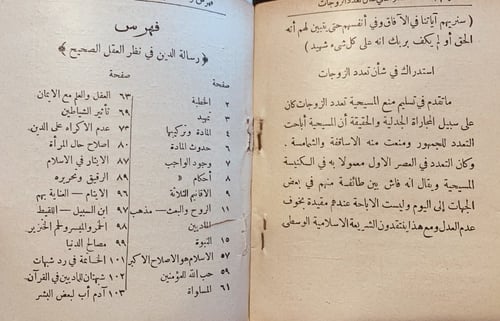 ( سنريهم آياتنا في الآفاق وفي أنفسهم حتى يتبين لهم أنه
الحق أو لم يكف بربك انه على كل شيء شهيد )
استدراك في شأن تعدد الزوجات
ما تقدم في تسليم منع المسيحية تعدد الزوجات كان
على سبيل المجاراة الجدلية والحقيقة أن المسيحية أباحت
التعدد للجمهور ومنعت منه الاساقفة والشامسة .
وكان التعدد في العصر الاول معمولا به في الكنيسة
المسيحية ويقال انه فاش بين طائفة منهم في بعض
الجهات إلى اليوم وليست الاباحة عندهم مقيدة بخوف
عدم العدل ومع هذا ينتقدون الشريعة الاسلامية الوسطى
فهرس
﴿ رسالة الدين في نظر العقل الصحيح ﴾
صفحة
٢ الخطبة
٣ تمهيد
٤ المادة وتركيبها
٦ حدوث المادة
٧ وجود الواجب
٨ أحكام »
٩ الاقانيم الثلاثة
١١ الروح والبعث — مذهب
الماديين
١٥ النبوة
٥٧ الاسلام هو الاصلاح الاكبر
٥٩ حب الله للمؤمنين
٦١ المساواة
صفحة
٦٣ العقل والعلم مع الايمان
٦٩ تأثير الشياطين
٧٣ عدم الاكراه على الدين
٨٢ اصلاح حال المرأة
٨٥ الايثار في الاسلام
٨٩ الرقيق وتحريره
٩٦ الايتام — العناية بهم
٩٧ ابن السبيل — اللقيط
٩٨ الخمر والميسر ولحم الخنزير
٩٩ مصالح الدنيا
١٠١ الخاتمة في رد شبهات
١٠٢ شبهتان للماديين في القرآن
١٠٣ آدم أب لبعض البشر